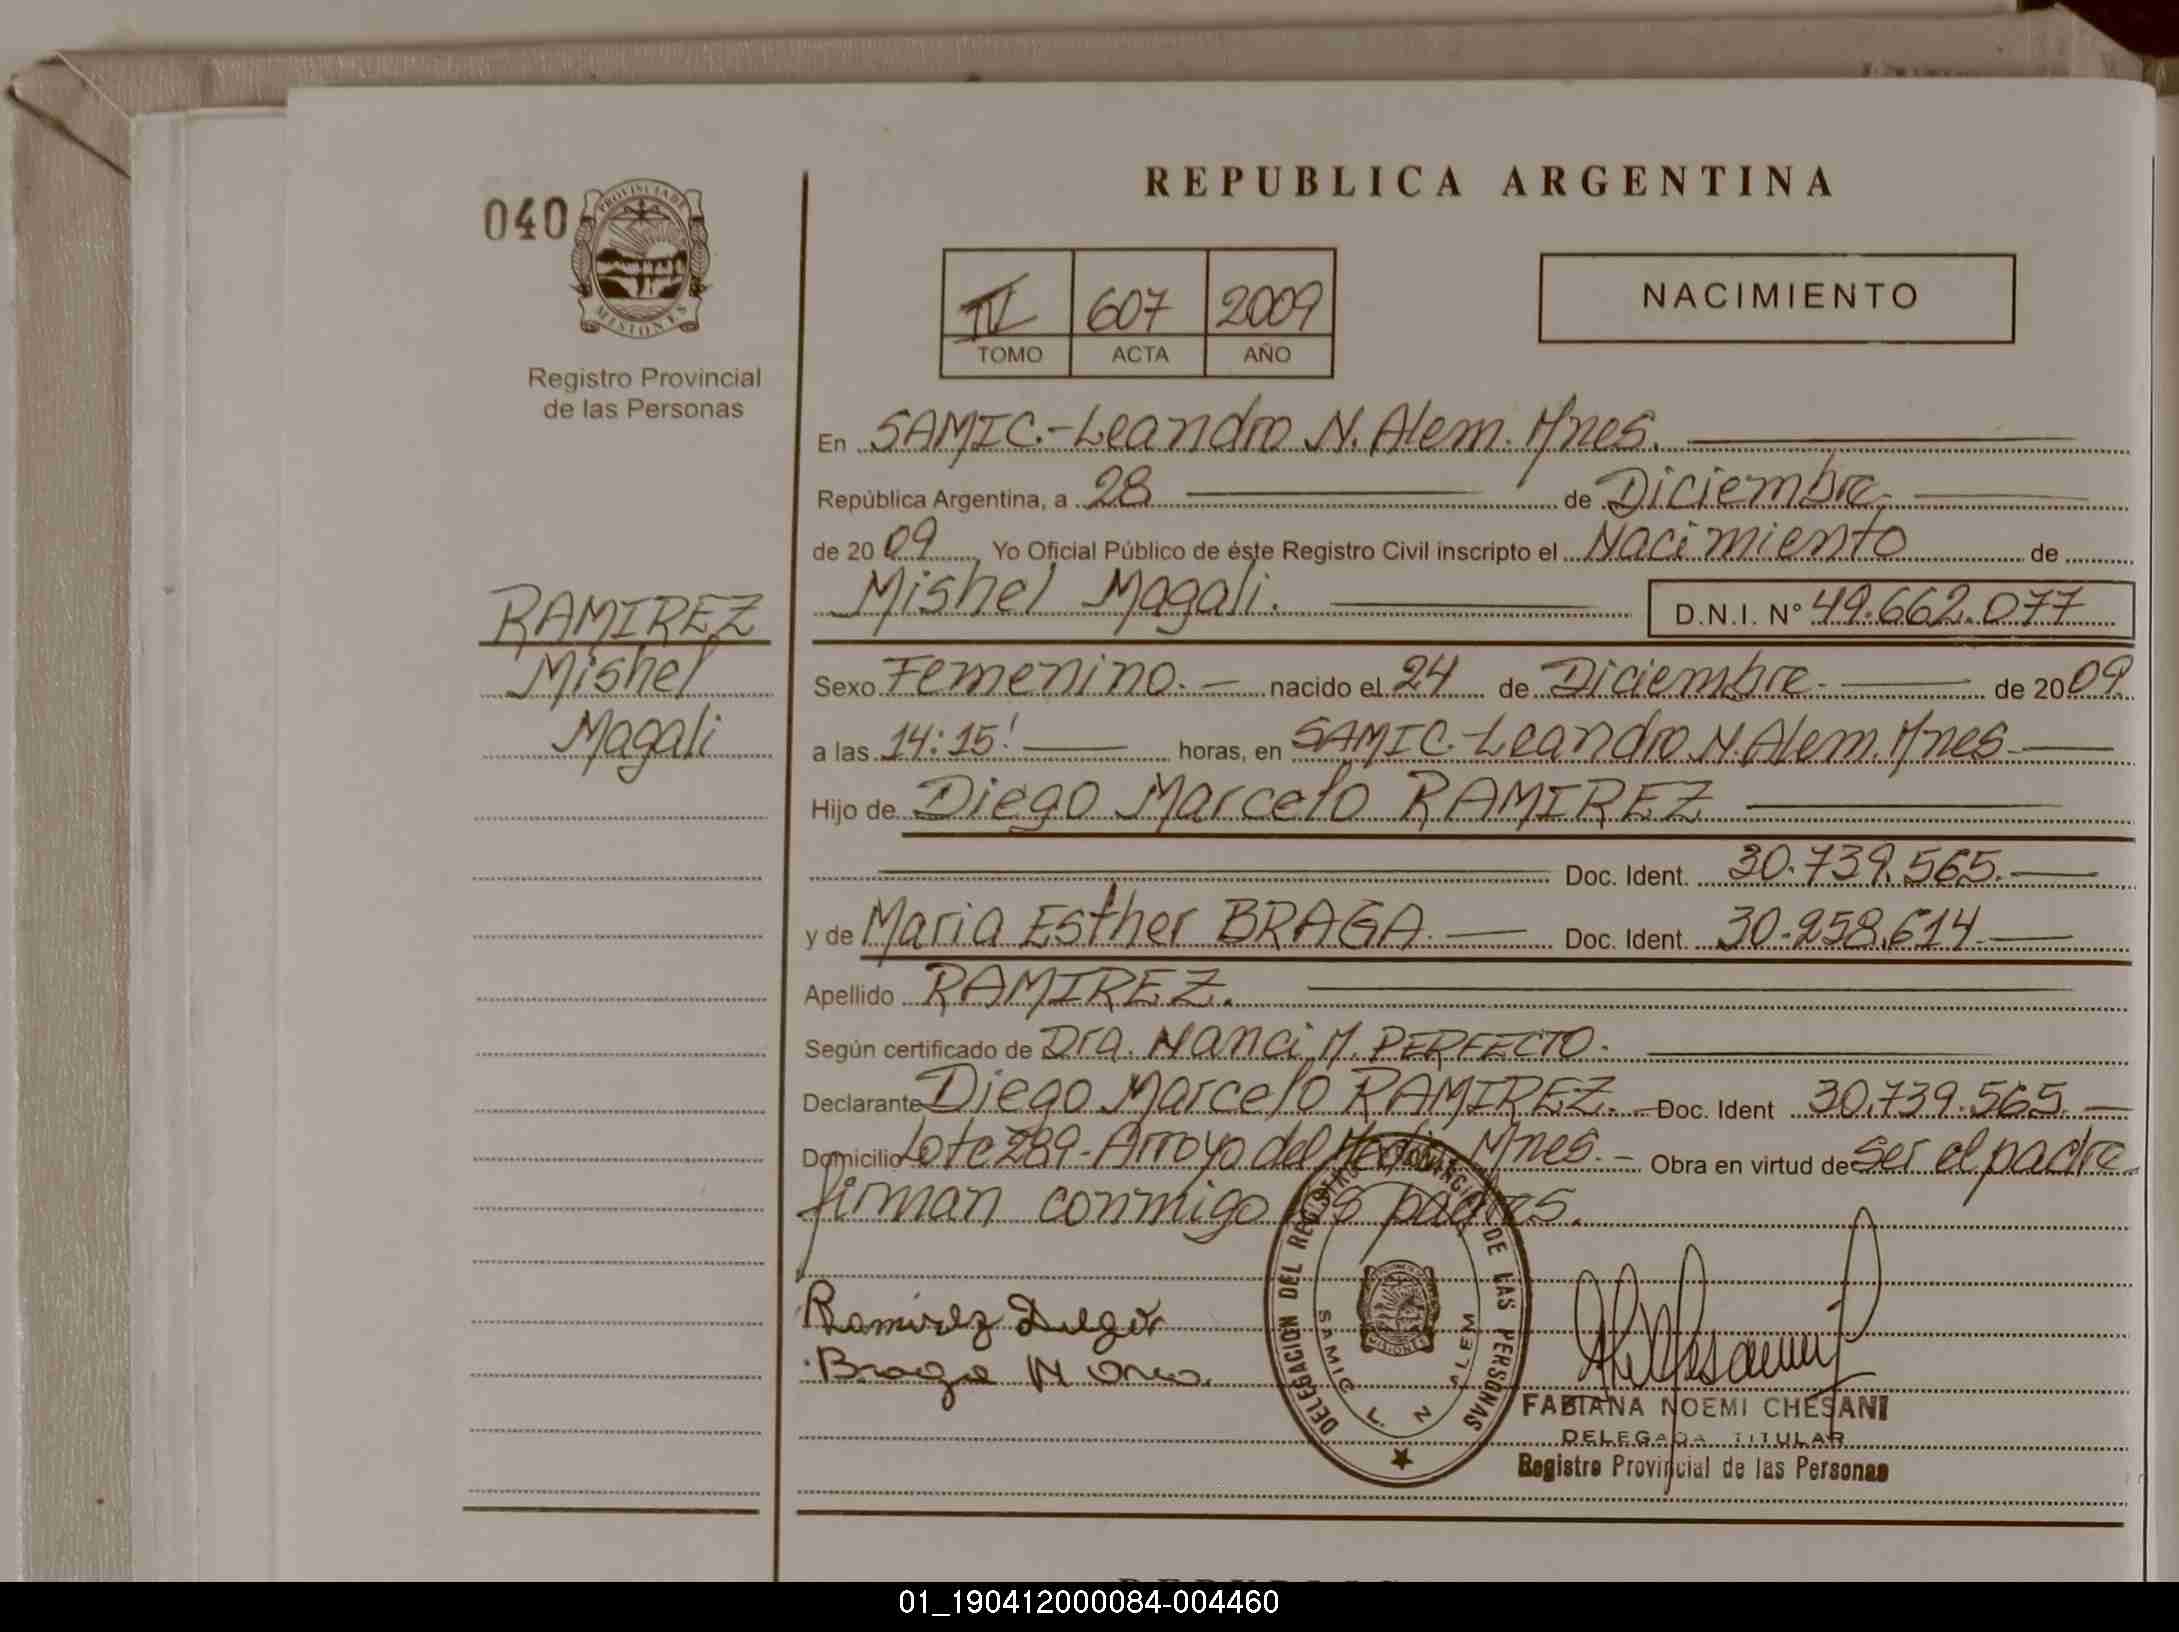 REPUBLICA ARGENTINA
040
PROVINCIA DE
MISIONES
Registro Provincial
de las Personas
IV 607 2009
TOMO ACTA AÑO
NACIMIENTO
En SAMIC.-Leandro N. Alem. Mnes.
República Argentina, a 28 de Diciembre
de 2009 Yo Oficial Público de éste Registro Civil inscripto el Nacimiento de
Mishel Magali. D.N.I. Nº 49.662.077
RAMIREZ
Mishel
Magali
Sexo Femenino. nacido el 24 de Diciembre de 2009
a las 14:15' horas, en SAMIC-Leandro N. Alem. Mnes
Hijo de Diego Marcelo RAMIREZ
Doc. Ident. 30.739.565.
y de Maria Esther BRAGA. Doc. Ident. 30.258.614
Apellido RAMIREZ.
Según certificado de Dra. Nanci M. PERFECTO.
Declarante Diego Marcelo RAMIREZ. Doc. Ident 30.739.565
Domicilio Lote 289-Arroyo del Medio Mnes. Obra en virtud de ser el padre
firman conmigo los padres.
Ramirez Diego
Braga M
DELEGACION DEL REGISTRO PROVINCIAL DE LAS PERSONAS
SAMIC L. N ALEM
MISIONES
FABIANA NOEMI CHESANI
DELEGADA TITULAR
Registro Provincial de las Personas
01_190412000084-004460